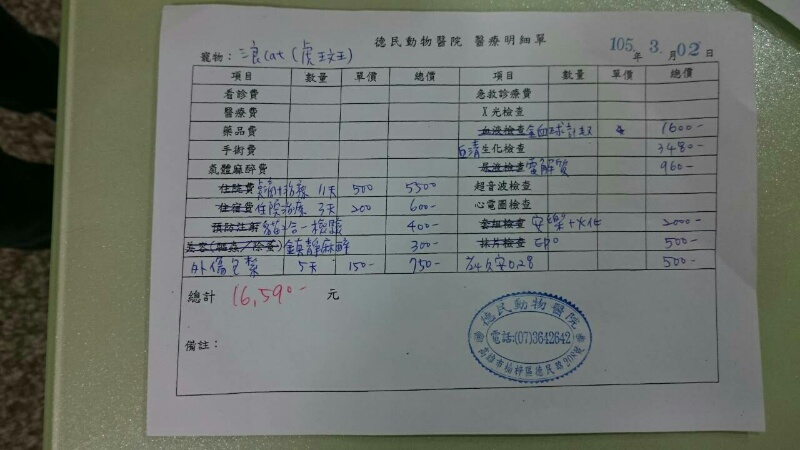 德民動物醫院 醫療明細單
105年 3.月 02日
寵物:浪cat(虎斑)
項目 數量 單價 總價 項目 數量 單價 總價
看診費 急救診療費
醫療費 X光檢查
藥品費 血液檢查 全血球計數 1600-
手術費 血清生化檢查 3480-
氣體麻醉費 尿液檢查 電解質 960-
住院費 治療 11天 500 5500 超音波檢查
住宿費 住院治療 3天 200 600- 心電圖檢查
預防注射 貓三合一檢驗 400- 套組檢查 安樂+火化 2000-
鎮靜麻醉 300- 抹片檢查 EPO 500-
外傷包紮 5天 150- 750- 500-
總計 16,590- 元
備註:
德民動物醫院
電話:(07)3642642
高雄市楠梓區德民路908號